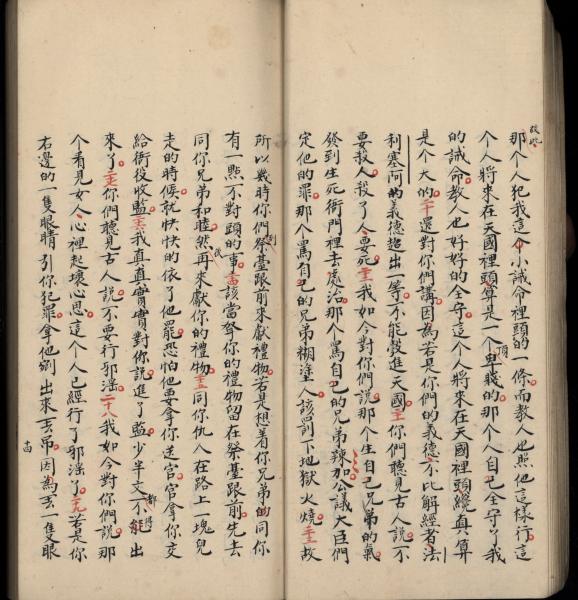 那个人犯我這个小誡命裡頭的一條而教人也照他這樣行這
个人將來在天國裡頭算是一个頂卑賤的那个人自己全守了我
的誡命教人也好好的全守這个人將來在天國裡頭纔真算
是个大的二十還對你們講因為若是你們的義德不比解經者法
利塞阿的義德超出一等不能彀進天國二一你們聽見古人說不
要殺人殺了人要死二二我如今對你們說那个生自己兄弟的氣
發到生死衙門裡去處治那个罵自己的兄弟辣加公議大臣們
定他的罪那个罵自己的兄弟糊塗人該罰下地獄火燒二三故
所以幾時你們到祭臺跟前來獻禮物若是想着你兄弟的同你
有一點不對頭的事二四該當弩你的禮物留在祭臺跟前先去
同你兄弟和睦然後再來獻你的禮物二五同你仇人在路上一塊兒
走的時候就快快的依了他罷恐怕他要拿你送官官拿你交
給衙役收監二六我真真實實對你說進了監少半文都不能得出
來了二七你們聽見古人說不要行邪淫二十八我如今對你們說那
个看見女人心裡起壞心思這个人已經行了邪淫了二九若是你
右邊的一隻眼睛引你犯罪拿他剜出來丟吊因為丟一隻眼